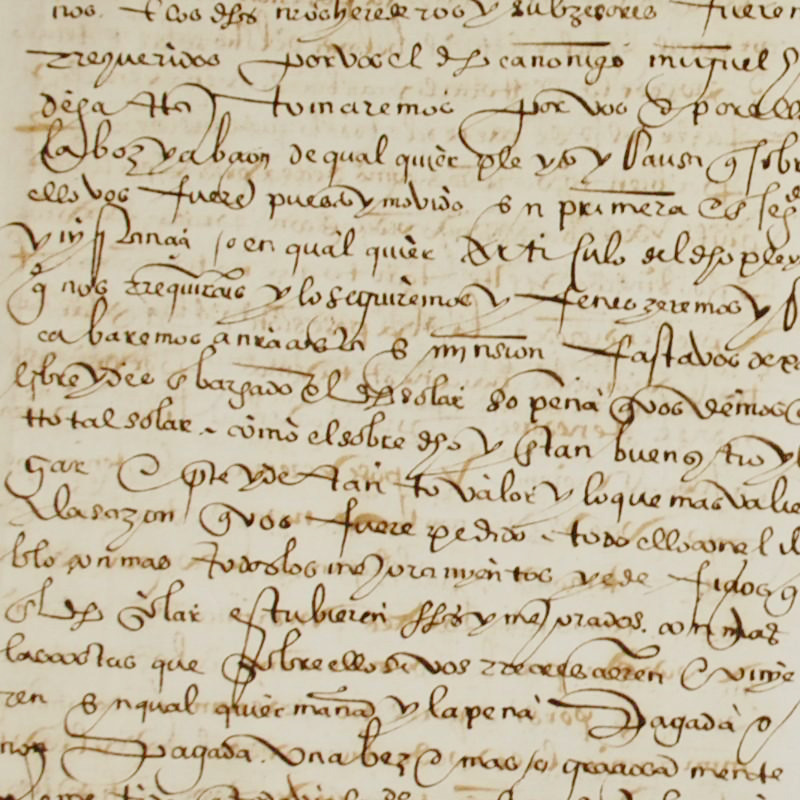 nos. e los dhos nros herederos y subzesores fueren
rrequeridos por vos el dho canonigo miguel
tomaremos por vos e por ell
la boz y abcon de qual quier pleyto y causa q sobr
ello vos fuere puesto y movido en primera
ynstançia o en qual quier articulo del dho pley
q nos rrequirais y lo seguiremos y feneçeremos y
cabaremos a nra costa e minsion fasta vos dexa
libre y desenbargado el dho solar so pena q vos demos
otro tal solar como el sobre dho y en tan buen sitio y l
gar e parte y de tan to valor y lo que mas valie
a la sazon q vos fuere pedido todo ello con el
blo con mas todos los mejoramyentos y edefiçios q
el dho solar estubieren fhos y mejorados. con mas
las costas que sobre ello se vos rrecresçieren e vinye
ren en qual quier manera y la pena pagada o
non pagada una bez o mas o graçiosa mente